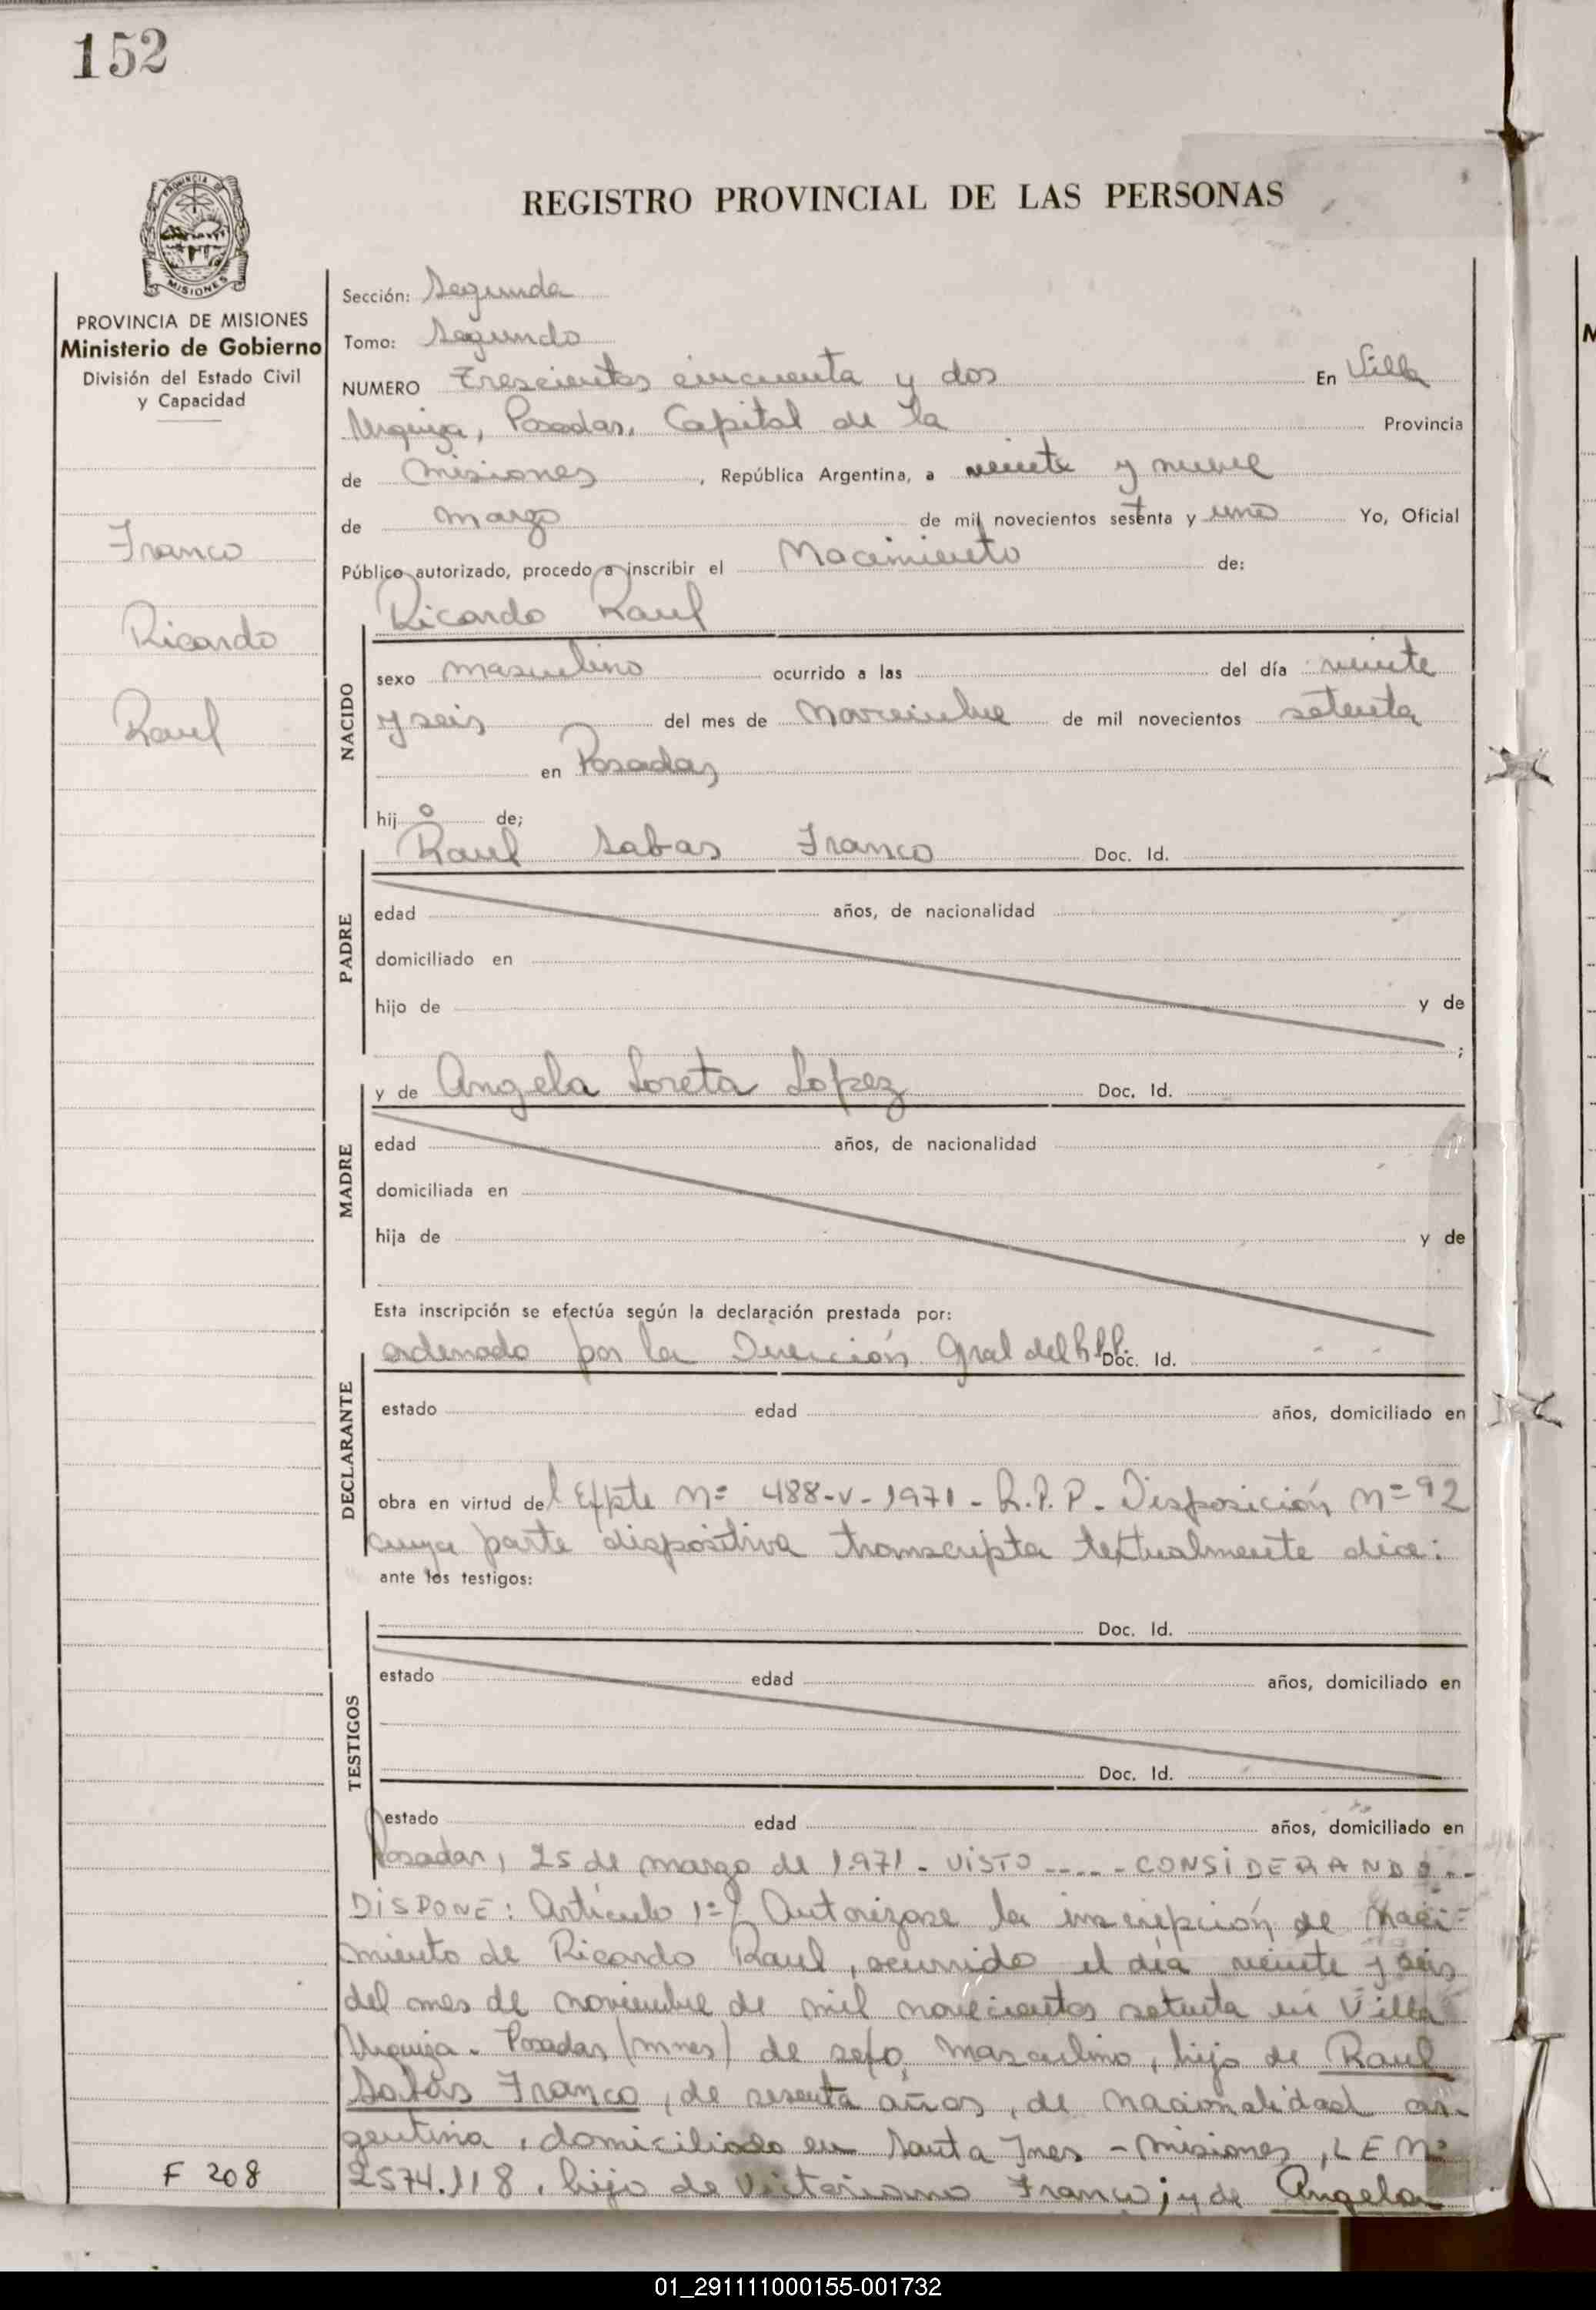 152
REGISTRO PROVINCIAL DE LAS PERSONAS
PROVINCIA DE MISIONES
Ministerio de Gobierno
División del Estado Civil
y Capacidad
Franco
Ricardo
Raul
F 208
Sección: Segunda
Tomo: Segundo
NUMERO Trescientos cincuenta y dos En Villa
Urquiza, Posadas, Capital de la Provincia
de Misiones, República Argentina, a veinte y nueve
de marzo de mil novecientos sesenta y uno Yo, Oficial
Público autorizado, procedo a inscribir el Nacimiento de:
Ricardo Raul
NACIDO
sexo masculino ocurrido a las del día veinte
y seis del mes de Noviembre de mil novecientos setenta
en Posadas
hijo de;
PADRE
Raul Sabas Franco Doc. Id.
edad años, de nacionalidad
domiciliado en
hijo de y de
;
MADRE
y de Angela Loreta Lopez Doc. Id.
edad años, de nacionalidad
domiciliada en
hija de y de
Esta inscripción se efectúa según la declaración prestada por:
DECLARANTE
ordenado por la Dirección Gral del R.P.P. Doc. Id.
estado edad años, domiciliado en
obra en virtud del Expte Nº 488-V-1971- R.P.P- Disposición Nº 92
cuya parte dispositiva transcripta textualmente dice:
ante los testigos:
TESTIGOS
Doc. Id.
estado edad años, domiciliado en
Doc. Id.
estado edad años, domiciliado en
Posadas, 25 de marzo de 1971- VISTO ---- CONSIDERANDO --
DISPONE: Artículo 1º) Autorizase la inscripción de naci=
miento de Ricardo Raul, ocurrido el día veinte y seis
del mes de noviembre de mil novecientos setenta en Villa
Urquiza. Posadas (mnes) de sexo masculino, hijo de Raul
Sabas Franco, de sesenta años, de nacionalidad ar-
gentina, domiciliado en Santa Ines - Misiones, L E Nº
2574.118, hijo de Victoriano Franco; y de Angela
01_291111000155-001732